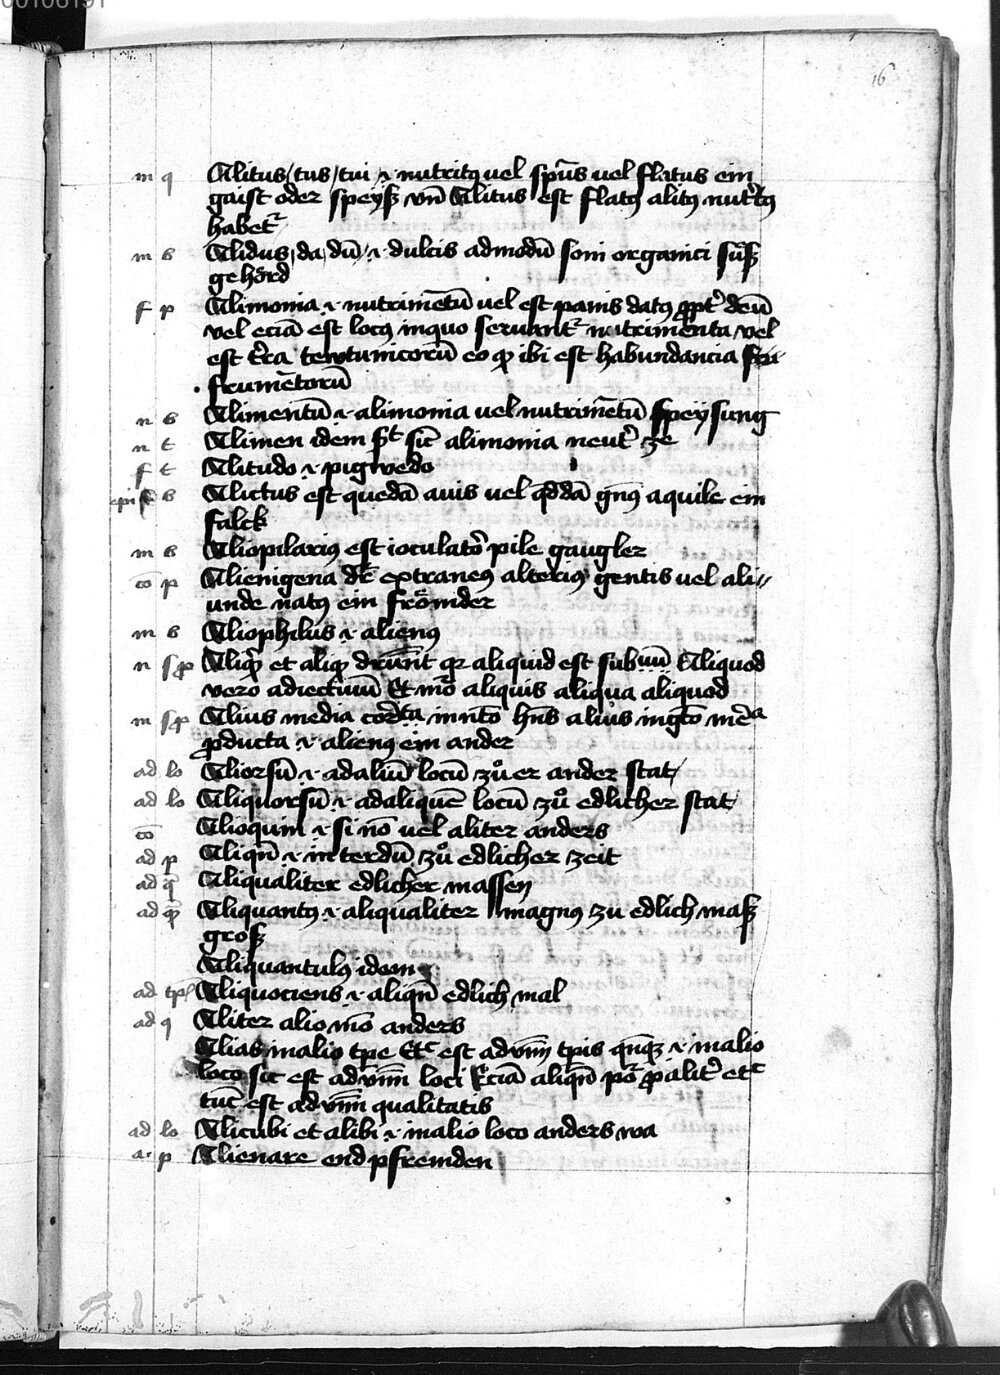 00106191
16
m q Alitus / tus / tui .i. nutritus vel spūs vel flatus ein
gaist oder speyß vn̄ Alitus est flatus alitus nutritus
habet
m b Alidus, da, dū .i. dulcis admodū soni organici sůß
gehörd
f p Alimonia .i. nutrimētū vel est panis datus ꝓpt̄ deū
vel eciā est locus inquo servant̄ nutrimenta vel
est t̄ra tewtunicorū eo ꝙ ibi est habundancia fru
frumētorū
n b Alimentū .i. alimonia vel nutrimētū speysung
n t Alimen idem st sic̄ alimonia neut̄ ge
f t Alitudo .i. pigwedo
epi b Alictus est quedā avis vel qddā gn̄us aquile ein
falck
m b Aliopilarius est ioculator̄ pile gaugler
cō p Alienigena dr̄ extraneus alterius gentis vel ali
unde natus ein frömder
m b Aliophilus .i. alienus
n sp Aliqd̄ et aliqͥ drūnt qr aliquid est subuū Aliquod
vero adiectivū Et mō aliquis aliqua aliquod
m sp Alius media cor̄ta in nt̄o hn̄s alius in gt̄o mēᵃ
ꝓducta .i. alienus ein ander
ad lo Aliorsū .i. ad aliū locū zů er ander stat
ad lo Aliquorsū .i. ad aliquē locū zů edlicher stat
cō Alioquin .i. si nō vel aliter anders
ad p Aliqn̄ .i. interdū zů edlicher zeit
ad q Aliqualiter edlicher massen
ad qp Aliquantus .i. aliqualiter magnus zu edlich maß
groß
Aliquantulus idem
ad tp Aliquociens .i. aliqn̄ edlich mal
ad q Aliter alio mō anders
Alias in alio tpe Etc̄ est adv̄m tp̄is qn̄qʒ .i. in alio
loco sic est adv̄m loci Eciā aliqn̄ po ꝓ alit̄ etc̄
tūc est adv̄m qualitatis
ad lo Alicubi et alibi .i. in alio loco anders wa
a. p Alienare endpfremden